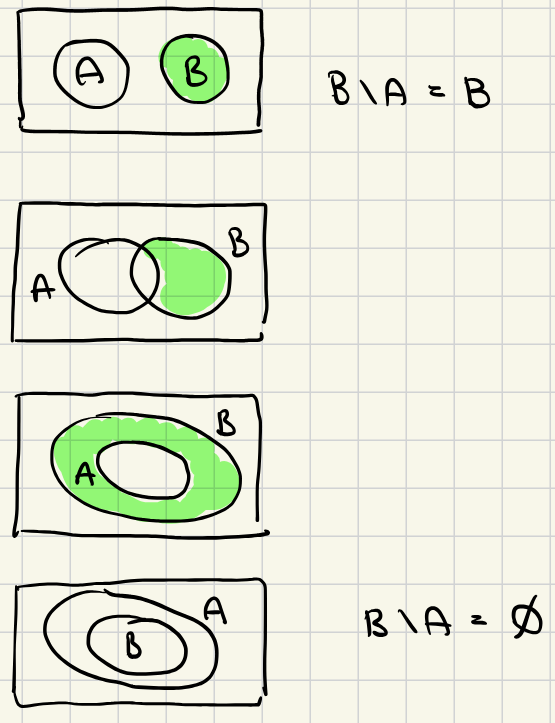 A B
B \ A = B
A B
A B
A B
B \ A = ∅